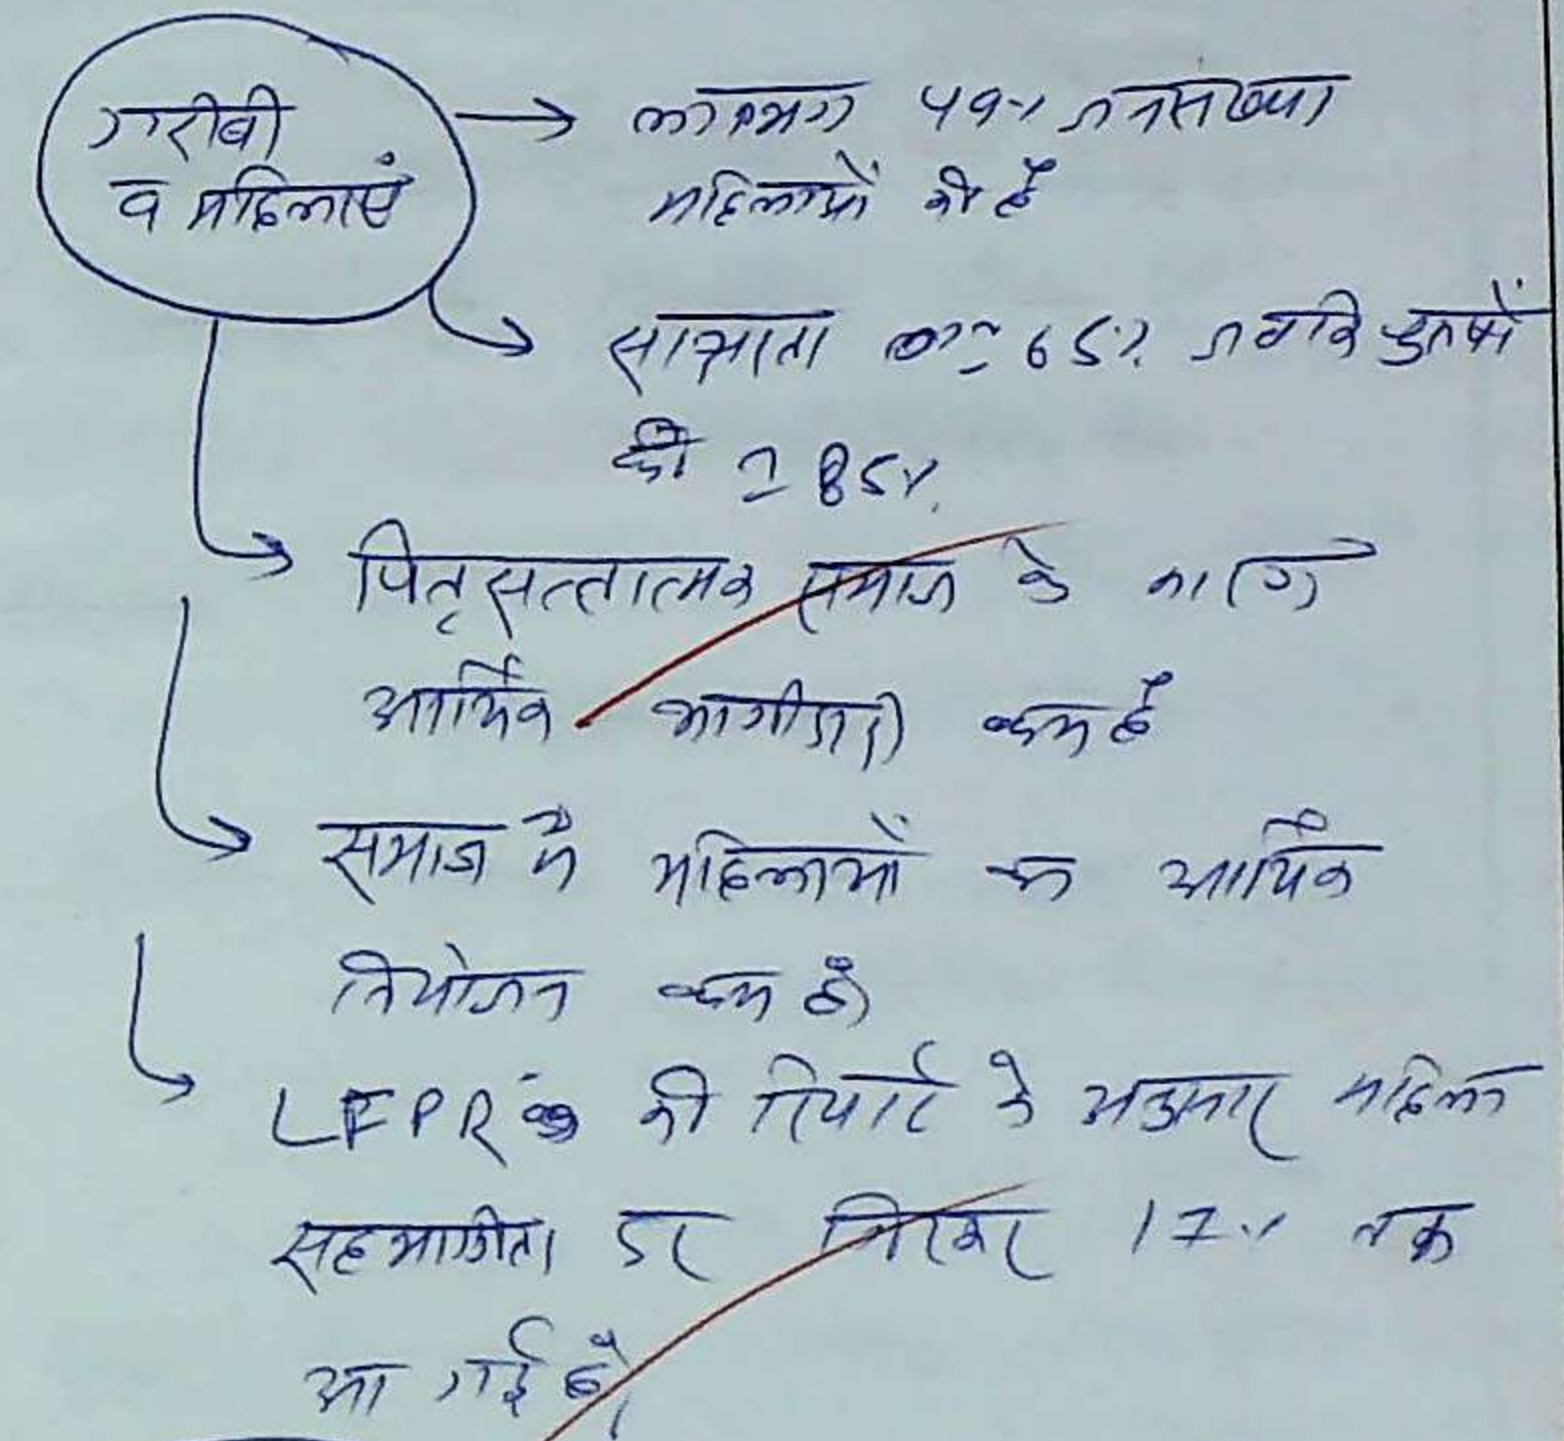 गरीबी
व महिलाएं
→ लगभग 49% जनसंख्या
महिलाओं की है
साक्षरता ≃ 65% जबकि पुरुषों
की ≃ 85%
पितृसत्तात्मक समाज के कारण
आर्थिक भागीदारी कम है
समाज में महिलाओं का आर्थिक
नियोजन कम है।
LFPR की रिपोर्ट के अनुसार महिला
सहभागिता दर गिरकर 17% तक
आ गई है।